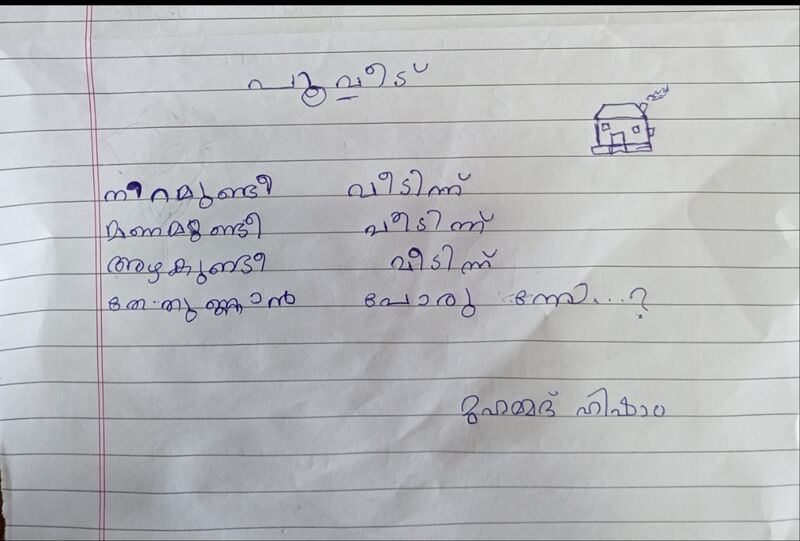 പൂവീട്
നിറമുണ്ടീ വീടിന്ന്
മണമുണ്ടീ വീടിന്ന്
അഴകുണ്ടീ വീടിന്ന്
പോരു
മുഹമ്മദ് ഹിഷാം